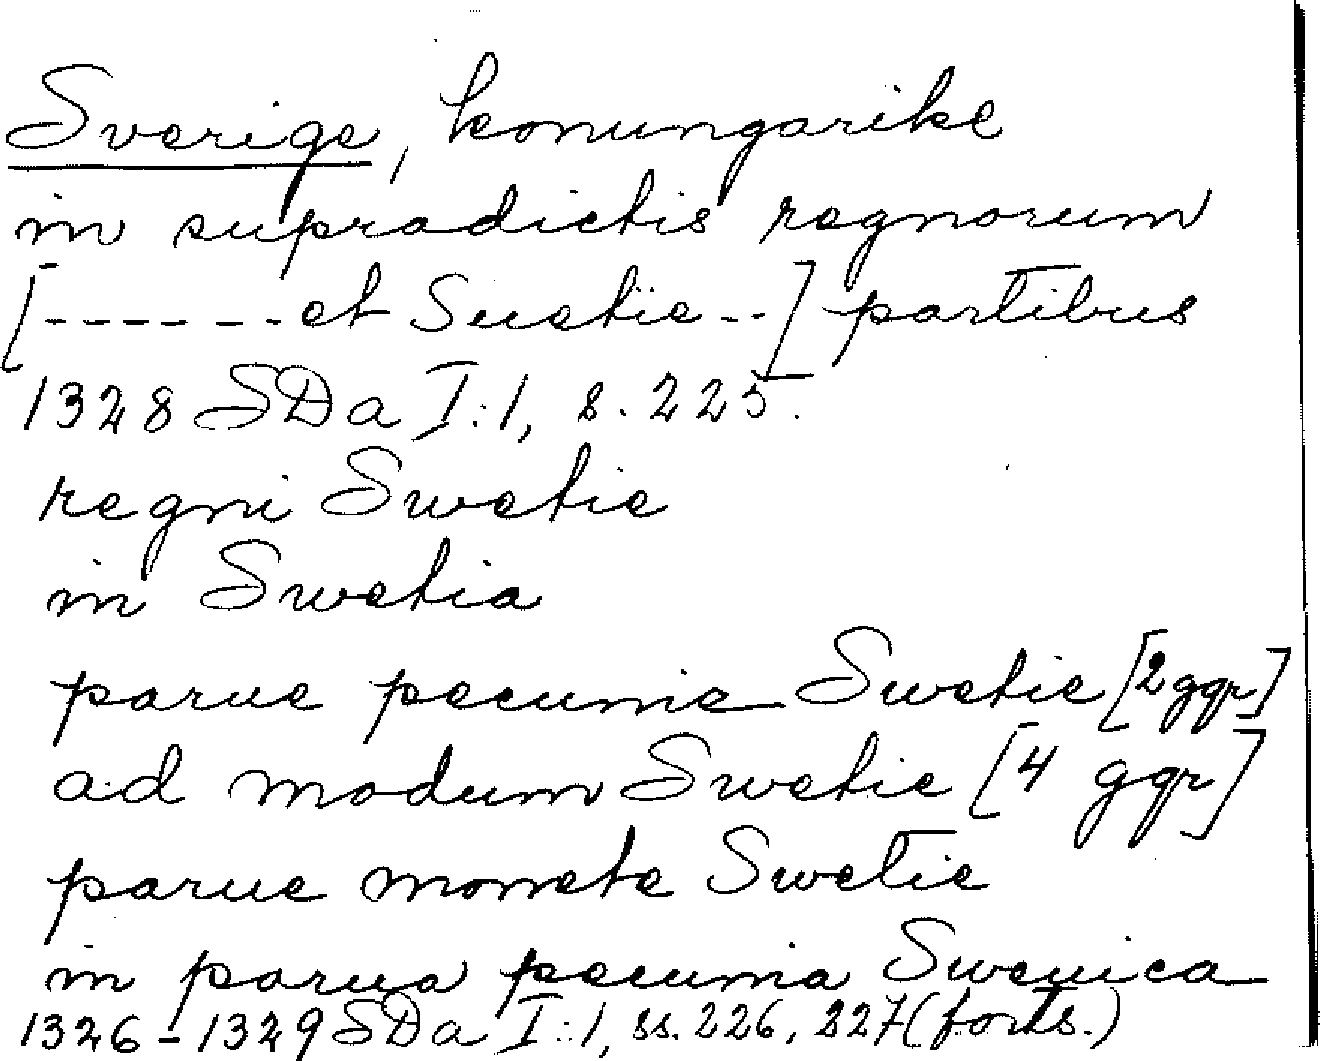 Sverige, konungarike
in supradictis regnorum
[------et Suetie--] partibus
1328 SDa I:1, s. 225.
regni Swetie
in Swetia
parue pecunie Swetie [2 ggr]
ad modum Swetie [4 ggr]
parue monete Swetie
in parua pecunia Swenica
1326-1329 SDa I:1, ss. 226, 227 (forts.)